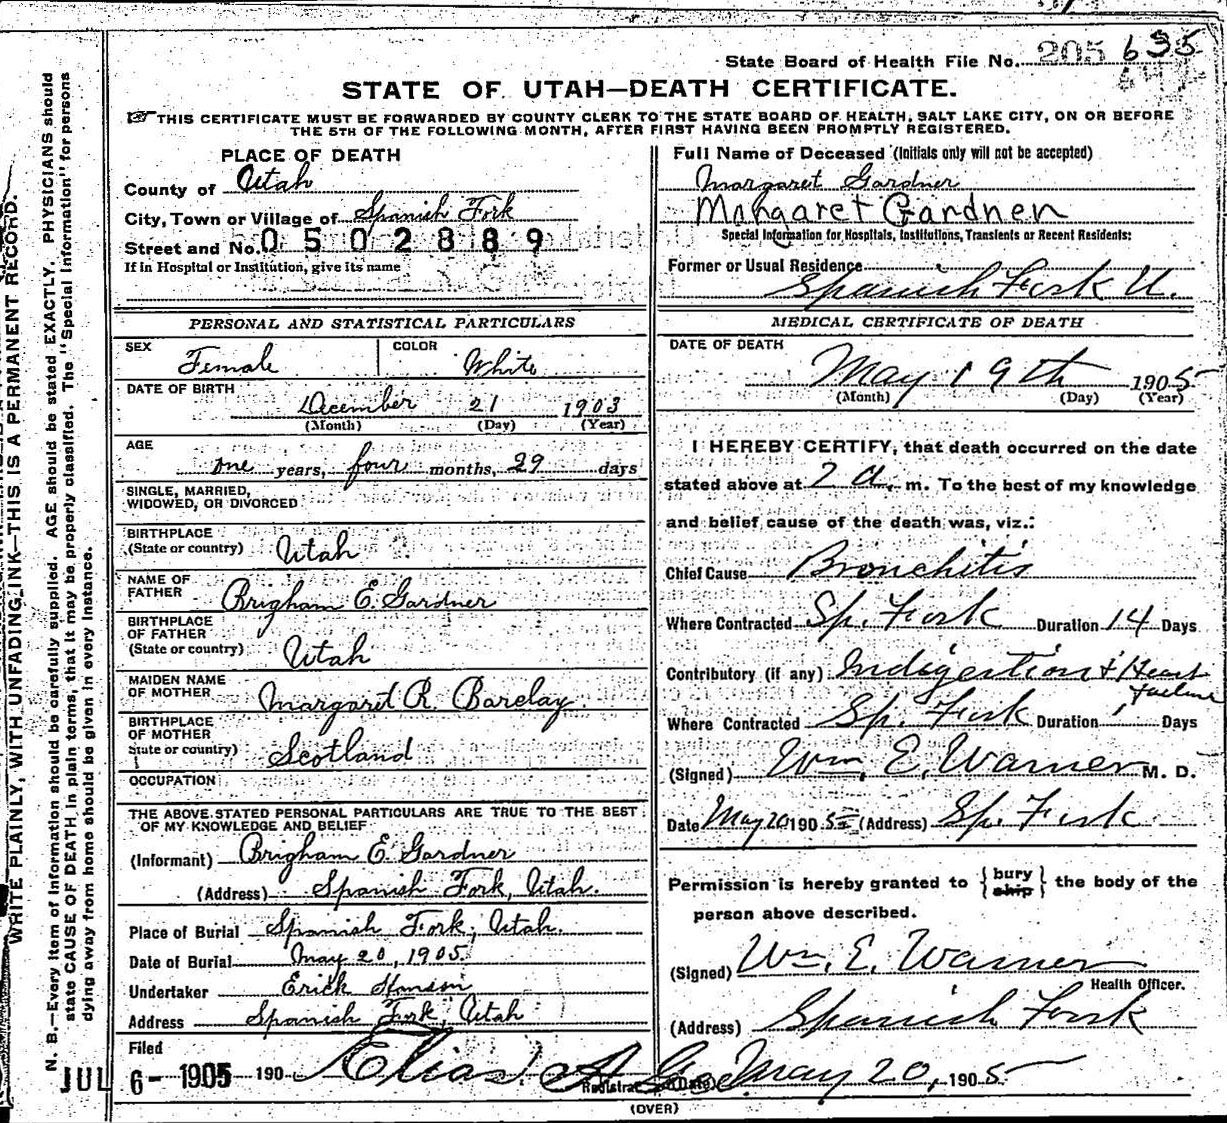 State Board of Health File No. 205 635
STATE OF UTAH—DEATH CERTIFICATE.
THIS CERTIFICATE MUST BE FORWARDED BY COUNTY CLERK TO THE STATE BOARD OF HEALTH, SALT LAKE CITY, ON OR BEFORE
THE 5TH OF THE FOLLOWING MONTH, AFTER FIRST HAVING BEEN PROMPTLY REGISTERED.
PLACE OF DEATH
County of Utah
City, Town or Village of Spanish Fork
Street and No. 0502889
If in Hospital or Institution, give its name
Full Name of Deceased (Initials only will not be accepted)
Margaret Gardner
Margaret Gardner
Special Information for Hospitals, Institutions, Transients or Recent Residents:
Former or Usual Residence
Spanish Fork U.
PERSONAL AND STATISTICAL PARTICULARS
SEX Female COLOR White
DATE OF BIRTH
December 21 1903
(Month) (Day) (Year)
AGE
one years, four months, 29 days
SINGLE, MARRIED,
WIDOWED, OR DIVORCED
BIRTHPLACE
(State or country) Utah
NAME OF
FATHER Brigham E. Gardner
BIRTHPLACE
OF FATHER
(State or country) Utah
MAIDEN NAME
OF MOTHER Margaret R. Barclay
BIRTHPLACE
OF MOTHER
State or country) Scotland
OCCUPATION
THE ABOVE STATED PERSONAL PARTICULARS ARE TRUE TO THE BEST
OF MY KNOWLEDGE AND BELIEF
(Informant) Brigham E. Gardner
(Address) Spanish Fork, Utah.
Place of Burial Spanish Fork, Utah.
Date of Burial May 20, 1905.
Undertaker Erick Hanson
Address Spanish Fork, Utah
Filed
JUL 6- 1905 190 Elias A
Registrar
MEDICAL CERTIFICATE OF DEATH
DATE OF DEATH
May 19th 1905
(Month) (Day) (Year)
I HEREBY CERTIFY, that death occurred on the date
stated above at 2 a. m. To the best of my knowledge
and belief cause of the death was, viz.:
Chief Cause Bronchitis
Where Contracted Sp. Fork Duration 14 Days
Contributory (if any) Indigestion & Heart
Failure
Where Contracted Sp. Fork Duration Days
(Signed) Wm. E. Warner M. D.
Date May 20 1905 (Address) Sp. Fork
Permission is hereby granted to { bury ship } the body of the
person above described.
(Signed) Wm. E. Warner
Health Officer.
(Address) Spanish Fork
(Date) May 20, 1905
(OVER)
WRITE PLAINLY, WITH UNFADING INK—THIS IS A PERMANENT RECORD.
N. B.—Every item of information should be carefully supplied. AGE should be stated EXACTLY. PHYSICIANS should
state CAUSE OF DEATH in plain terms, that it may be properly classified. The "Special Information" for persons
dying away from home should be given in every instance.